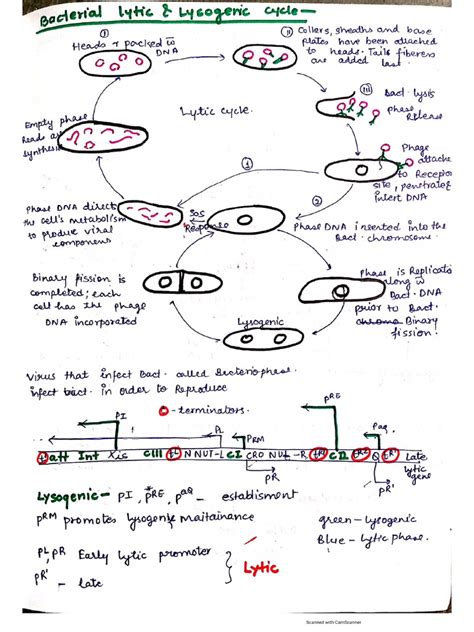 Bacterial lytic & Lysogenic cycle -
① Heads r packed w̄ DNA
② Collers, sheaths and base
plates have been attached
to heads. Tail fiberes
are added last.
③ Bact. lysis
phase,
Release
Lytic cycle.
Empty phase
Heads
synthesi
Phage
attache
to Receptor
site, penetrate
insert DNA
①
②
Phage DNA direct
the cell's metabolism
to produce viral
component
SOS
Response
Phage DNA inserted into the
Bact chromosome
Binary fission is
completed; each
cell has the phage
DNA incorporated
Lysogenic
Phase is Replicatio
along w
Bact. DNA
prior to Bact.
Binary
fission.
Virus that infect Bact. called Bacteriophage.
infect bact. in order to Reproduce
- terminators.
PI
PL
PRM
PRE
Paq
att Int Xis CIII N NUT-L CI CRO NUT-R CII Q Late
lytic
gene
PR
PR'
Lysogenic - PI, PRE, PaQ - establisment
PRM promotes lysogenic maitainance
green - Lysogenic
Blue - Lytic phase.
PL, PR Early lytic promoter
PR' - late
Lytic
Scanned with CamScanner